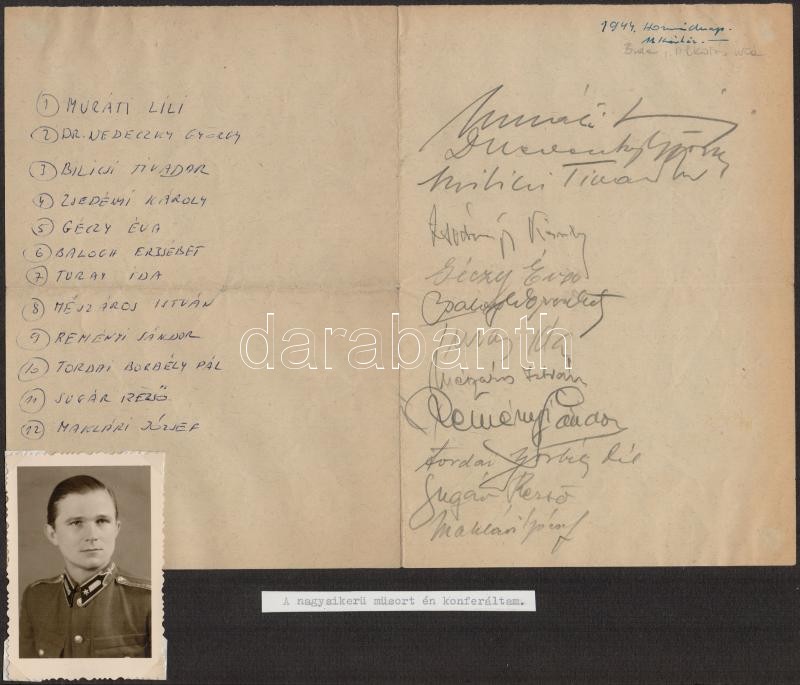 1944. Honvédnap.
Buda
1 MURÁTI LILI
2 DR. NEDECZKY GYÖRGY
3 BILICSI TIVADAR
4 ZSEDÉNYI KÁROLY
5 GÉCZY ÉVA
6 BALOGH ERZSÉBET
7 TURAY IDA
8 MÉSZÁROS ISTVÁN
9 REMÉNYI SÁNDOR
10 TORDAI BORBÉLY PÁL
11 SUGÁR REZSŐ
12 MAKLÁRI JÓZSEF
Bilicsi Tivadar
Károly
Géczy Éva
Mészáros István
Reményi Sándor
Tordai Borbély Pál
Sugár Rezső
Maklári József
darabanth
A nagysikerü müsort én konferáltam.